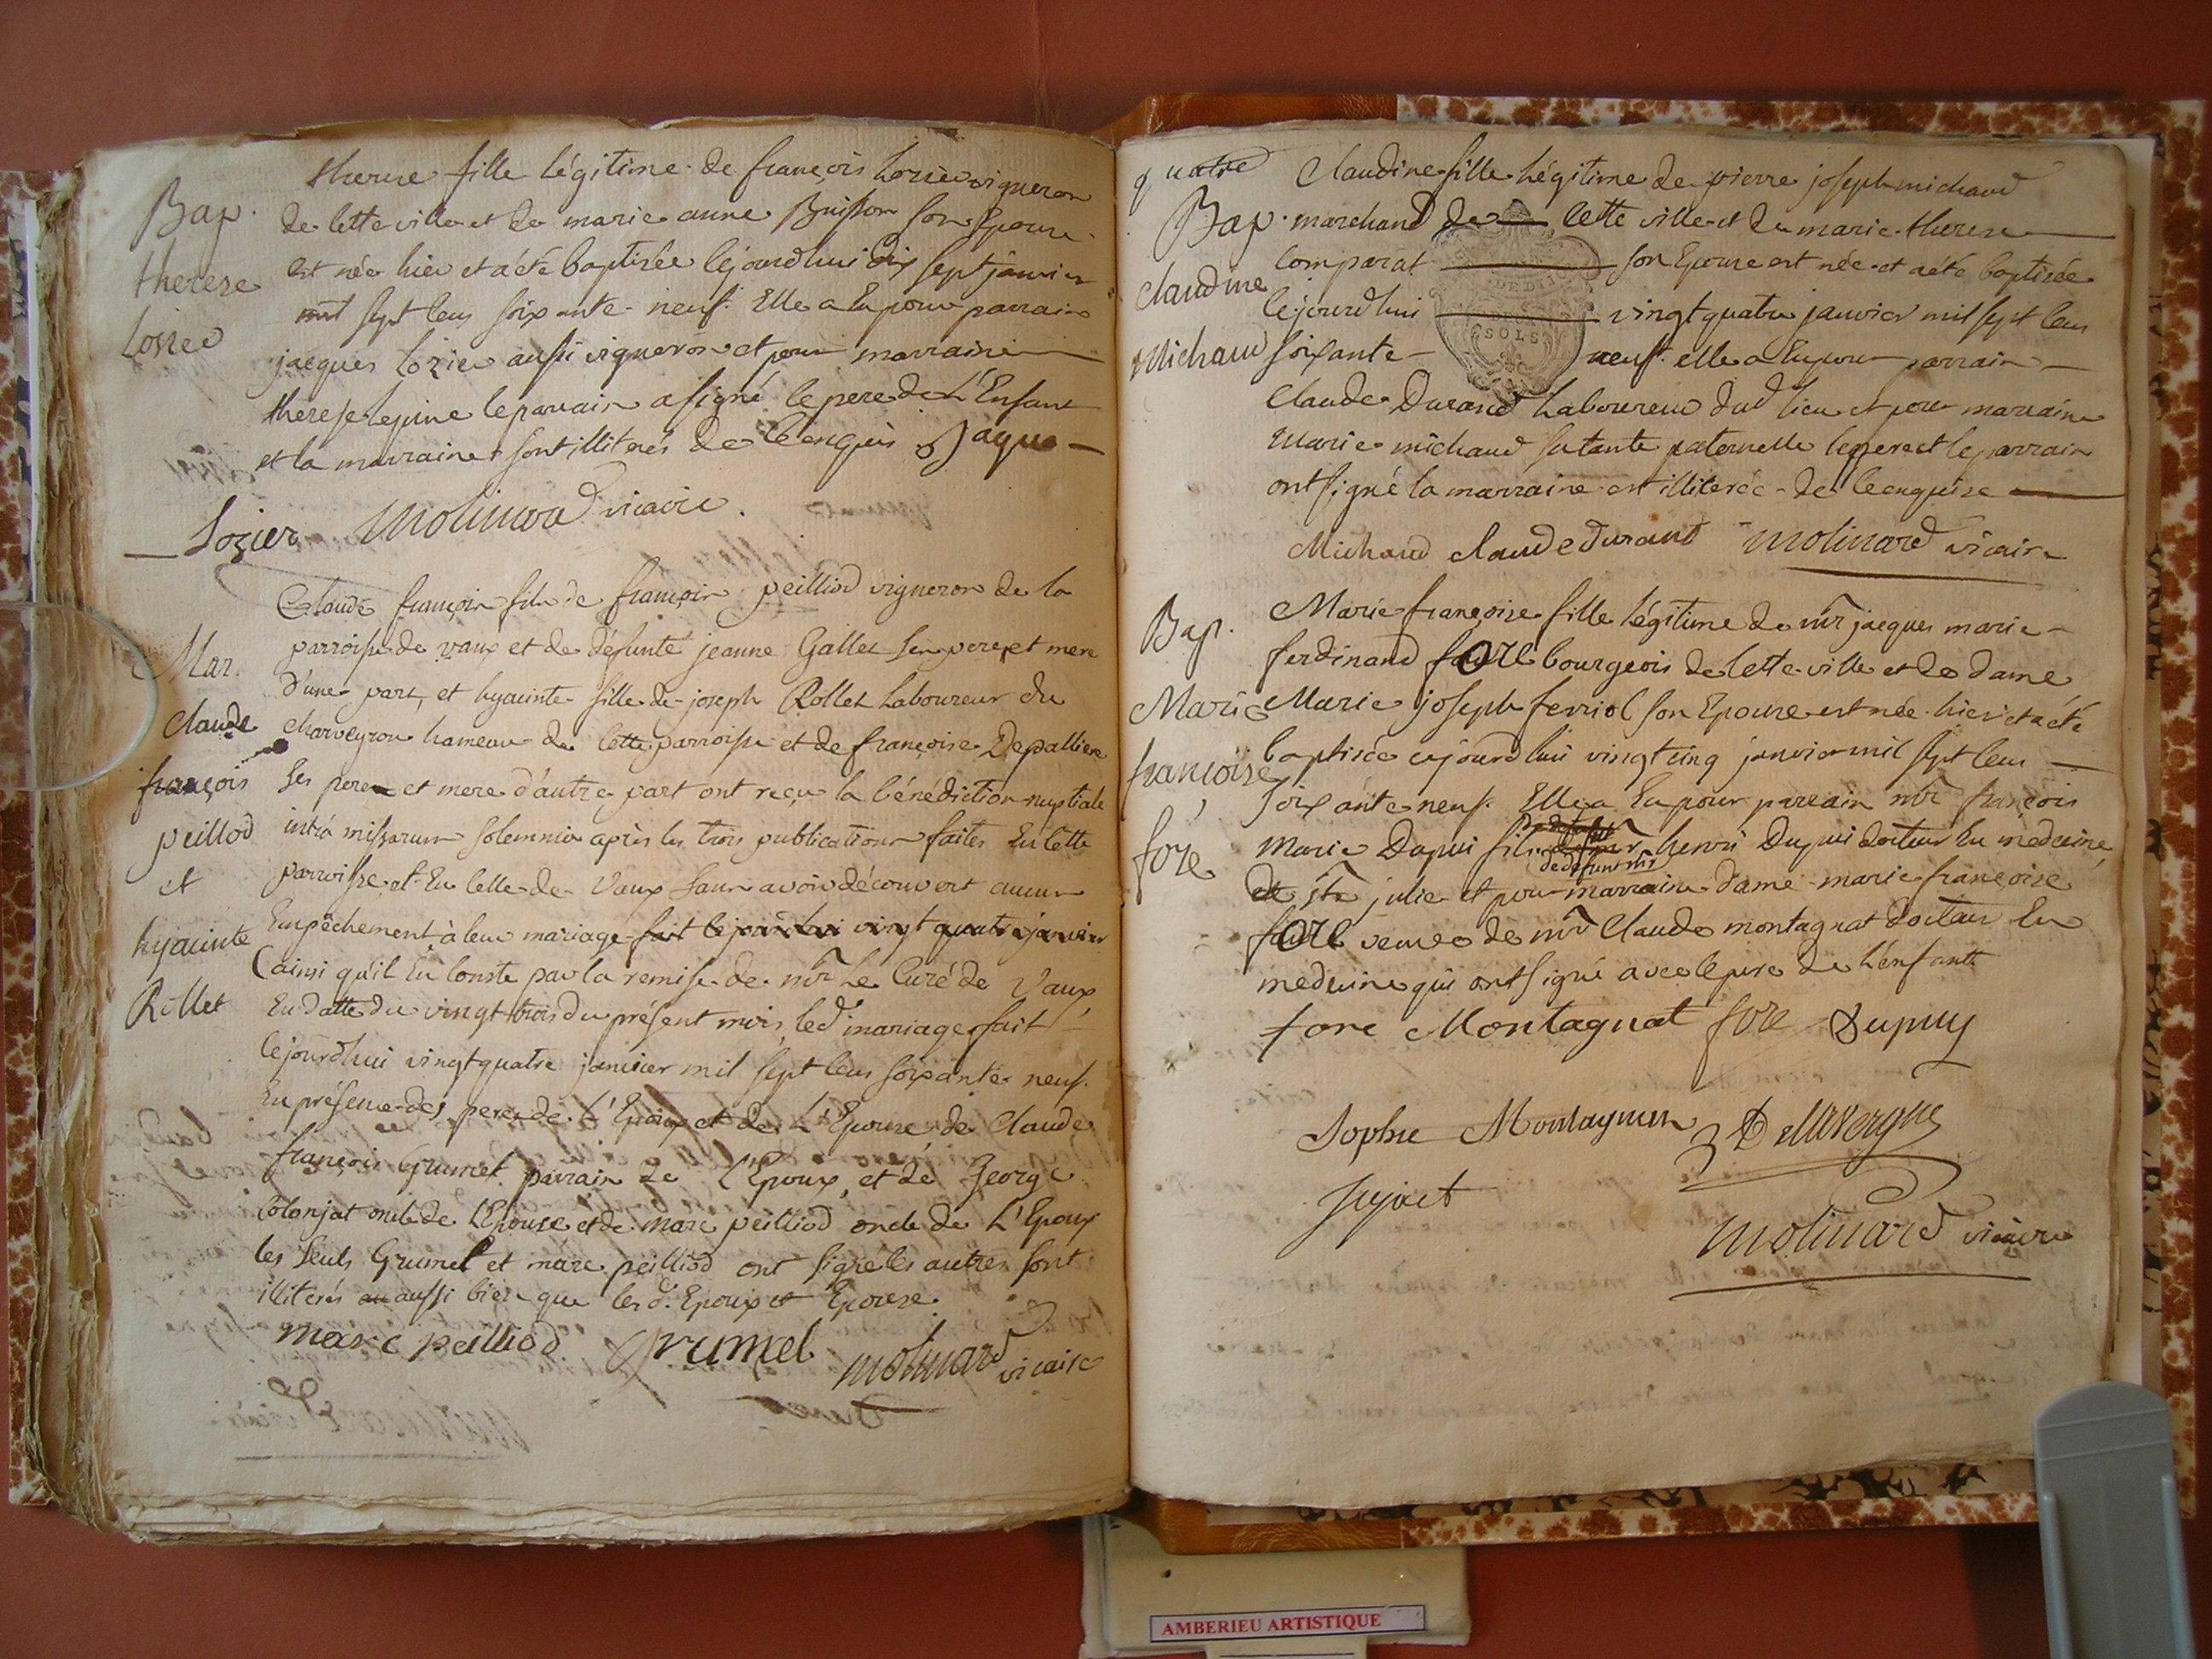 Bap.
therese
Lozier
therese fille légitime de françois Lozier vigneron
de cette ville et de marie anne Buisson son Epouse
est née hier et a été baptisée cejourdhui dix sept janvier
mil sept cens soixante neuf. Elle a Eu pour parrain
jacques Lozier aussi vigneron et pour marraine
therese lepine le parrain a signé le pere de L'Enfant
et la marraine sont illiterés de ce enquis Jaque
Lozier Molinard vicaire.
Mar.
claude
françois
peillod
et
hyacinte
Rollet
Claude françois fils de françois peilliod vigneron de la
parroisse de vaux et de défunte jeanne Gallet ses pere et mere
d'une part, et hyacinte fille de joseph Rollet Laboureur du
charveyron hameau de cette parroisse et de françoise Depalliere
ses pere et mere d'autre part ont reçu la bénédiction nuptiale
intrà missarum solemnia après les trois publications faites En cette
parroisse et En celle de Vaux sans avoir découvert aucun
Empêchement à leur mariage fait cejourdhui vingt quatre janvier
(ainsi qu'il En conste par la remise de mr Le Curé de Vaux
En datte du vingt trois du présent mois, led mariage fait
cejourdhui vingt quatre janvier mil sept cens soixante neuf.
En présence des peres de L'Epoux et de L'Epouse, de Claude
françois Grumet parrain de L'Epoux, et de George
Colonjat oncle de L'Epouse et de marc peilliod oncle de L'Epoux
les seuls Grumet et marc peilliod ont signé les autres sont
illiterés au aussi bien que les d. Epoux et Epouse.
marc peilliod Grumel molinard vicaire
quatre
Bap.
claudine
Michaud
Claudine fille Légitime de pierre joseph michaud
marchand de cette ville et de marie therese
Comparat son Epouse est née et a été baptisée
cejourdhui vingt quatre janvier mil sept cens
soixante neuf. elle a Eu pour parrain
Claude Durand Laboureur dud lieu et pour marraine
Marie michaud sa tante paternelle le pere et le parrain
ont signé la marraine est illiterée de ce enquise
SOLS
Michaud claude durant molinard vicaire
Bap.
Marie
françoise
fore
Marie françoise fille Légitime de mr jacques marie
ferdinand fore bourgeois de cette ville et de dame
Marie joseph ferriol son Epouse est née hier et a été
baptisée cejourdhui vingt cinq janvier mil sept cens
soixante neuf. Elle a Eu pour parrain mr françois
Marie Dupui fils henri Dupui docteur En médecine
de defunt mr
de st julie et pour marraine dame marie françoise
fore veuve de mr Claude montagnat docteur En
medecine qui ont signé avec le pere de L'enfant
fore Montagnat fore Dupuy
Sophie Montagnat Dellavergne
Jujat
molinard vicaire
AMBERIEU ARTISTIQUE